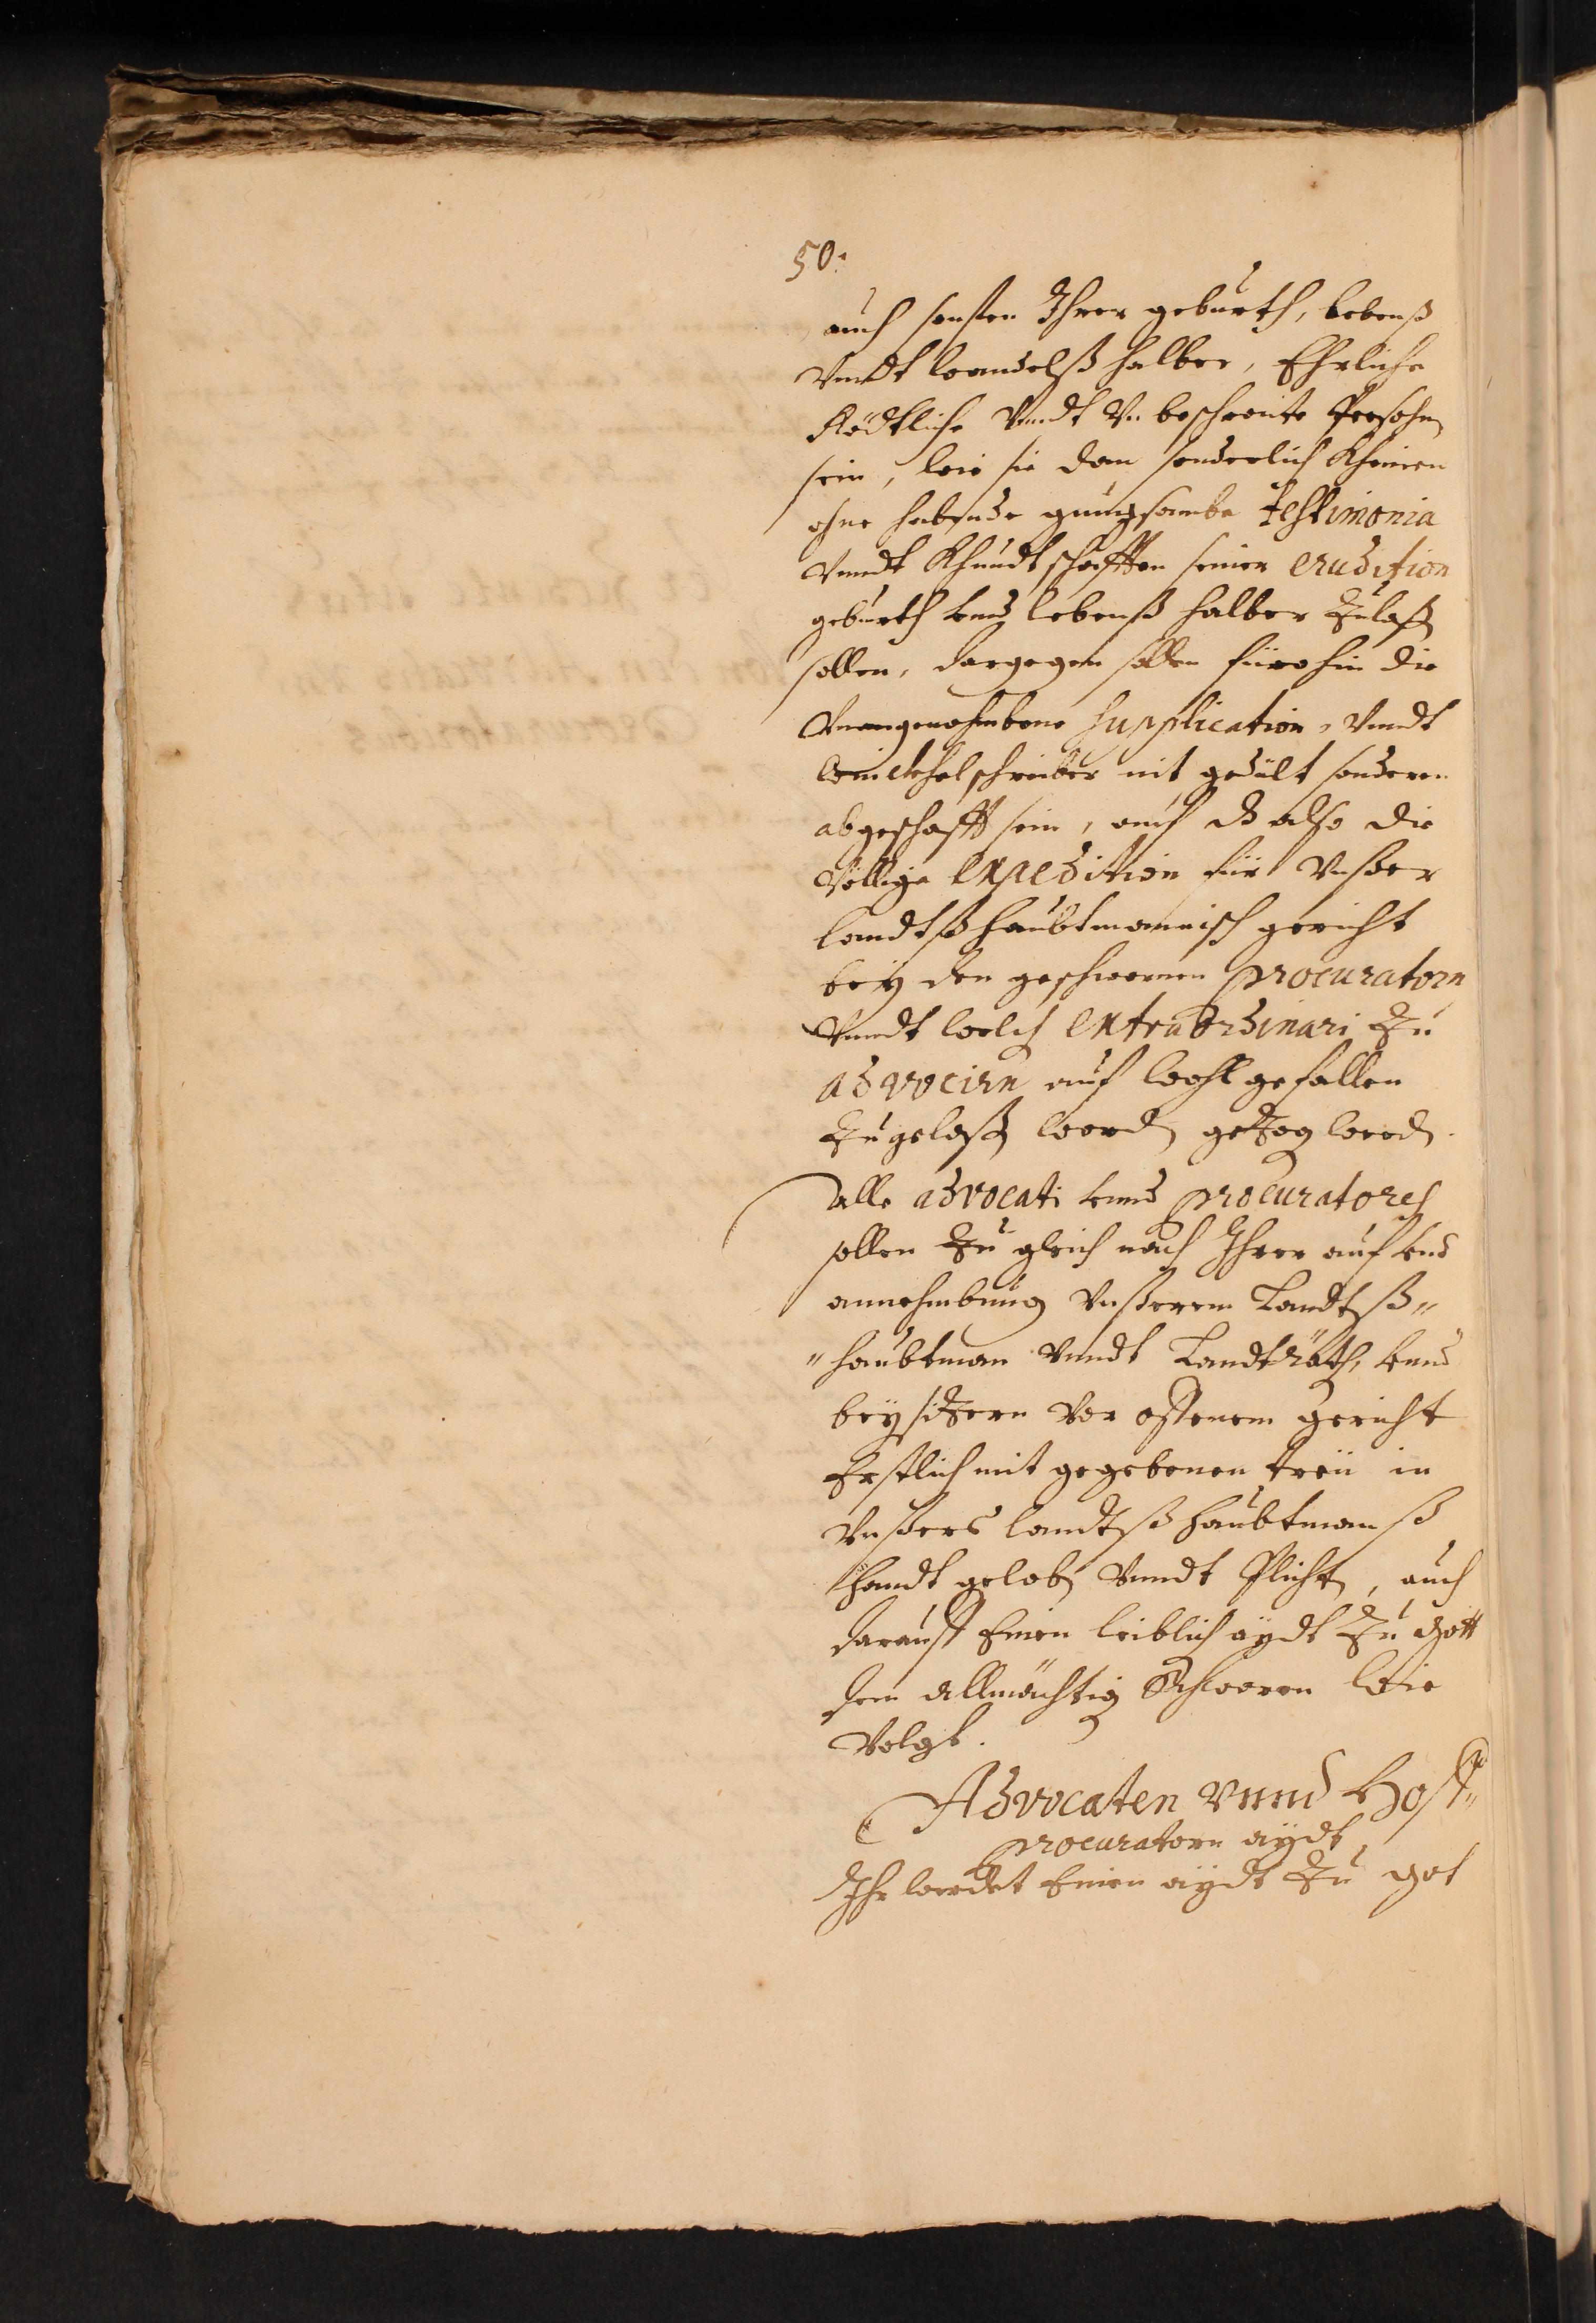 50:
auch sonsten Ihrer geburth, lebenß
Vnndt wandelß halber, Ehrliche
Rödtliche Vnndt Vnbeschreite Persohn
sein, wie sie dan sonderlich Kheinen
ohne habende gnuegsambe testimonia
Vnndt Khundtschafften seiner erudition
geburth vnnd lebenß halber Zulaßen
sollen, dargegen sollen fürohin die
Vnangenohmbene supplication- Vnndt
winckhelschreiber nit gedult sonderen
abgeschafft sein, auch also die
Völlige expedition für Vnßer
landtßhaubtmannisch gericht
beÿ den geschwornen procuratorn
Vnndt welch extraordinari Zu
advocirn auf wohlgefallen
Zugelaßen worden gezogen werden.
Alle advocati vnnd procuratores
sollen Zu gleich nach Ihrer auf vnd
annehmbung Vnßerem Landtß-
haubtman Vnndt Landträth, vnnd
beÿsitzern Vor offenem gericht
Erstlich mit gegebenen treü in
Vnßers landtßhaubtmanß
handt geloben Vnndt Plichten, auch
darauff Einen leiblichen aÿdt Zu gott
dem allmächtigen Schweren wie
Volgt.
Advocaten Vnnd Hoff-
procuratorn aÿdt
Ihr werdet Einen aÿdt Zu got